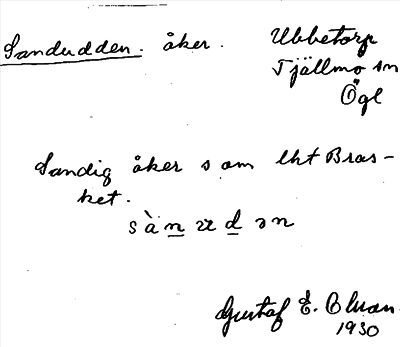 Sandudden. åker. Ubbetorp
Tjällmo sn
Ögl
Sandig åker s om lht Bras-
ket.
sànʉdən
Gustaf E. Bluan.
1930